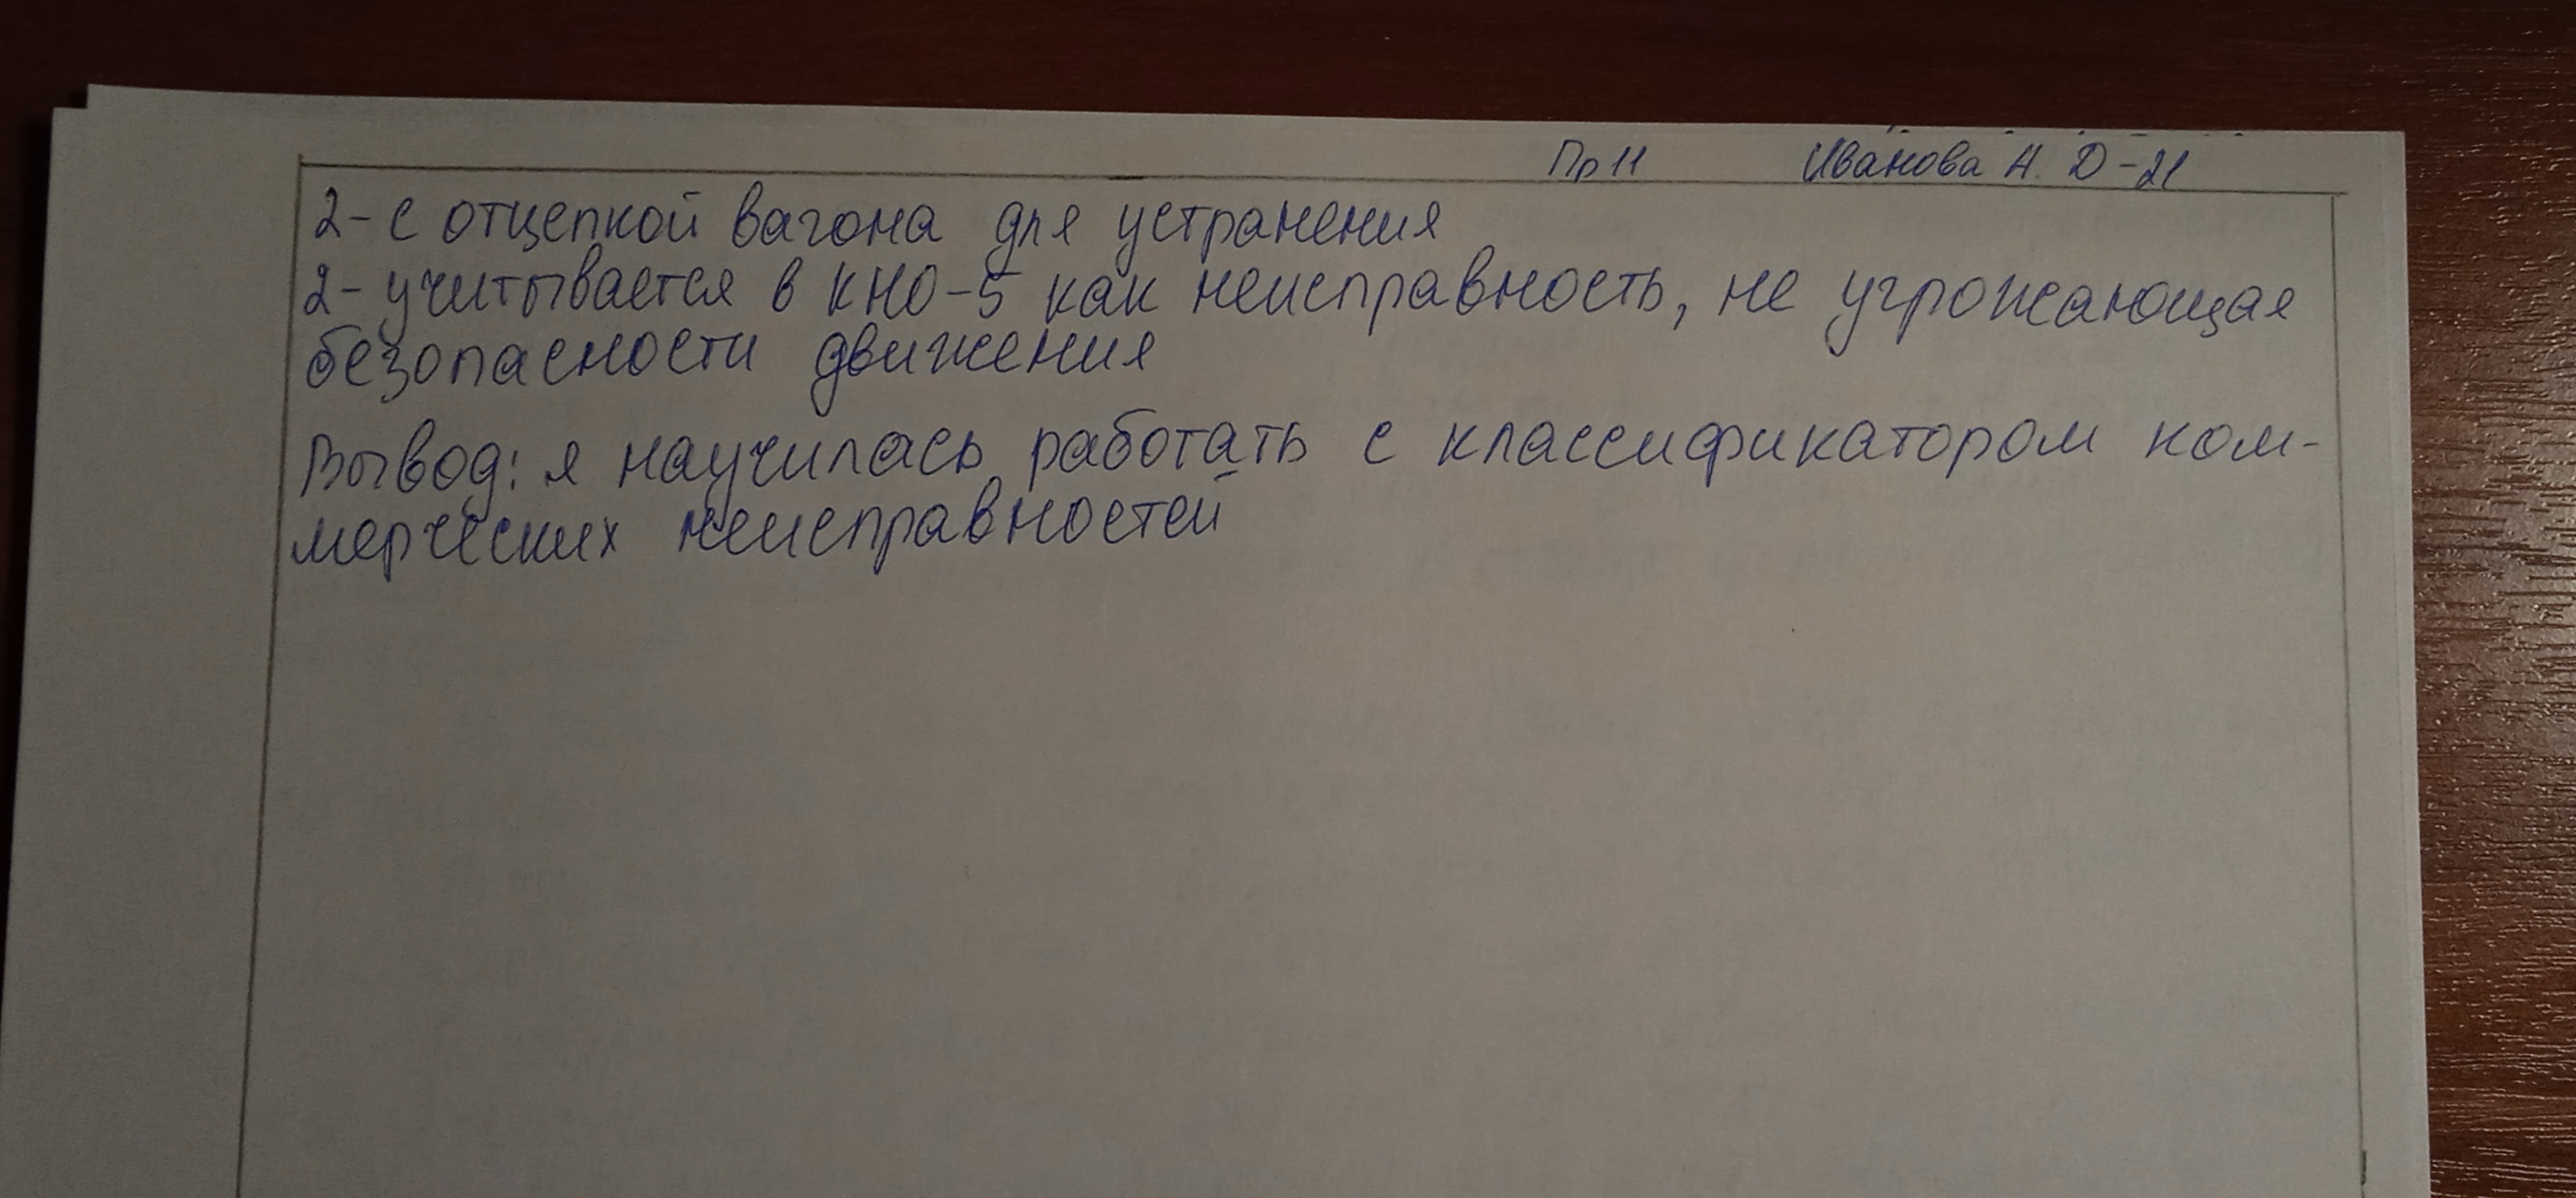 Пр 11 Иванова А. Д-21
2- с отцепкой вагона для устранения
2- учитывается в КНО-5 как неисправность, не угрожающая
безопасности движения
Вывод: я научилась работать с классификатором ком-
мерческих неисправностей